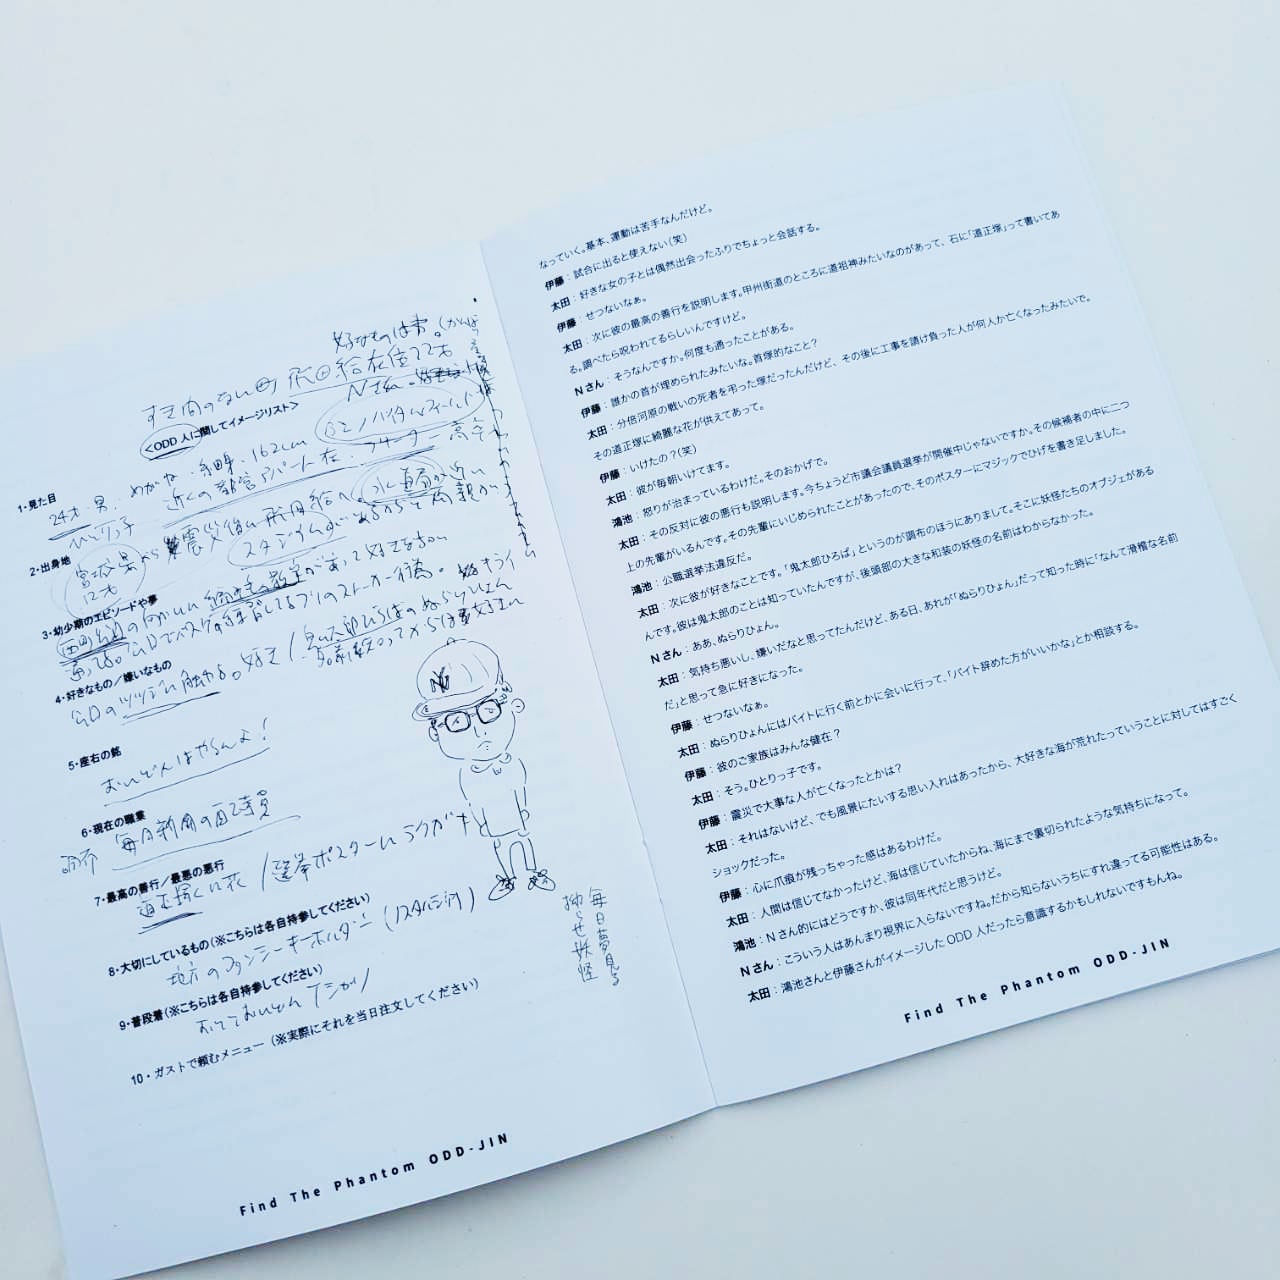 好きなものは
すき間のない町
Nさん。
<ODD人に関してイメージリスト>
1・見た目
24才・男・めがね・162cm
近くの都営アパート在、フリーター
2・出身地
宮城県から震災後に
12才
スタジアムがあるから
3・幼少期のエピソードや夢
4・好きなもの/嫌いなもの
公園のツツジに触れる。
5・座右の銘
おいどんはやるんよ!
6・現在の職業
毎日新聞の配達員
7・最高の善行/最悪の悪行
道正塚に花/選挙ポスターにラクガキ
8・大切にしているもの(※こちらは各自持参してください)
地方のファンシーキーホルダー
9・普段着(※こちらは各自持参してください)
Tシャツ
10・ガストで頼むメニュー(※実際にそれを当日注文してください)
毎日夢見る
拗らせ妖怪
Find The Phantom ODD-JIN
なっていく。基本、運動は苦手なんだけど。
伊藤:試合に出ると使えない(笑)
太田:好きな女の子とは偶然出会ったふりでちょっと会話する。
伊藤:せつないなぁ。
太田:次に彼の最高の善行を説明します。甲州街道のところに道祖神みたいなのがあって、石に「道正塚」って書いてあ
る。調べたら呪われてるらしいんですけど。
Nさん:そうなんですか。何度も通ったことがある。
伊藤:誰かの首が埋められたみたいな。首塚的なこと?
太田:分倍河原の戦いの死者を弔った塚だったんだけど、その後に工事を請け負った人が何人か亡くなったみたいで。
その道正塚に綺麗な花が供えてあって。
伊藤:いけたの?(笑)
太田:彼が毎朝いけてます。
鴻池:怒りが治まっているわけだ。そのおかげで。
太田:その反対に彼の悪行も説明します。今ちょうど市議会議員選挙が開催中じゃないですか。その候補者の中に二つ
上の先輩がいるんです。その先輩にいじめられたことがあったので、そのポスターにマジックでひげを書き足しました。
鴻池:公職選挙法違反だ。
太田:次に彼が好きなことです。「鬼太郎ひろば」というのが調布のほうにありまして。そこに妖怪たちのオブジェがある
んです。彼は鬼太郎のことは知っていたんですが、後頭部の大きな和装の妖怪の名前はわからなかった。
Nさん:ああ、ぬらりひょん。
太田:気持ち悪いし、嫌いだなと思ってたんだけど、ある日、あれが「ぬらりひょん」だって知った時に「なんて滑稽な名前
だ」と思って急に好きになった。
伊藤:せつないなぁ。
太田:ぬらりひょんにはバイトに行く前とかに会いに行って、「バイト辞めた方がいいかな」とか相談する。
伊藤:彼のご家族はみんな健在?
太田:そう。ひとりっ子です。
伊藤:震災で大事な人が亡くなったとかは?
太田:それはないけど、でも風景にたいする思い入れはあったから、大好きな海が荒れたっていうことに対してはすごく
ショックだった。
伊藤:心に爪痕が残っちゃった感はあるわけだ。
太田:人間は信じてなかったけど、海は信じていたからね、海にまで裏切られたような気持ちになって。
鴻池:Nさん的にはどうですか、彼は同年代だと思うけど。
Nさん:こういう人はあんまり視界に入らないですね。だから知らないうちにすれ違ってる可能性はある。
太田:鴻池さんと伊藤さんがイメージしたODD人だったら意識するかもしれないですもんね。
Find The Phantom ODD-JIN